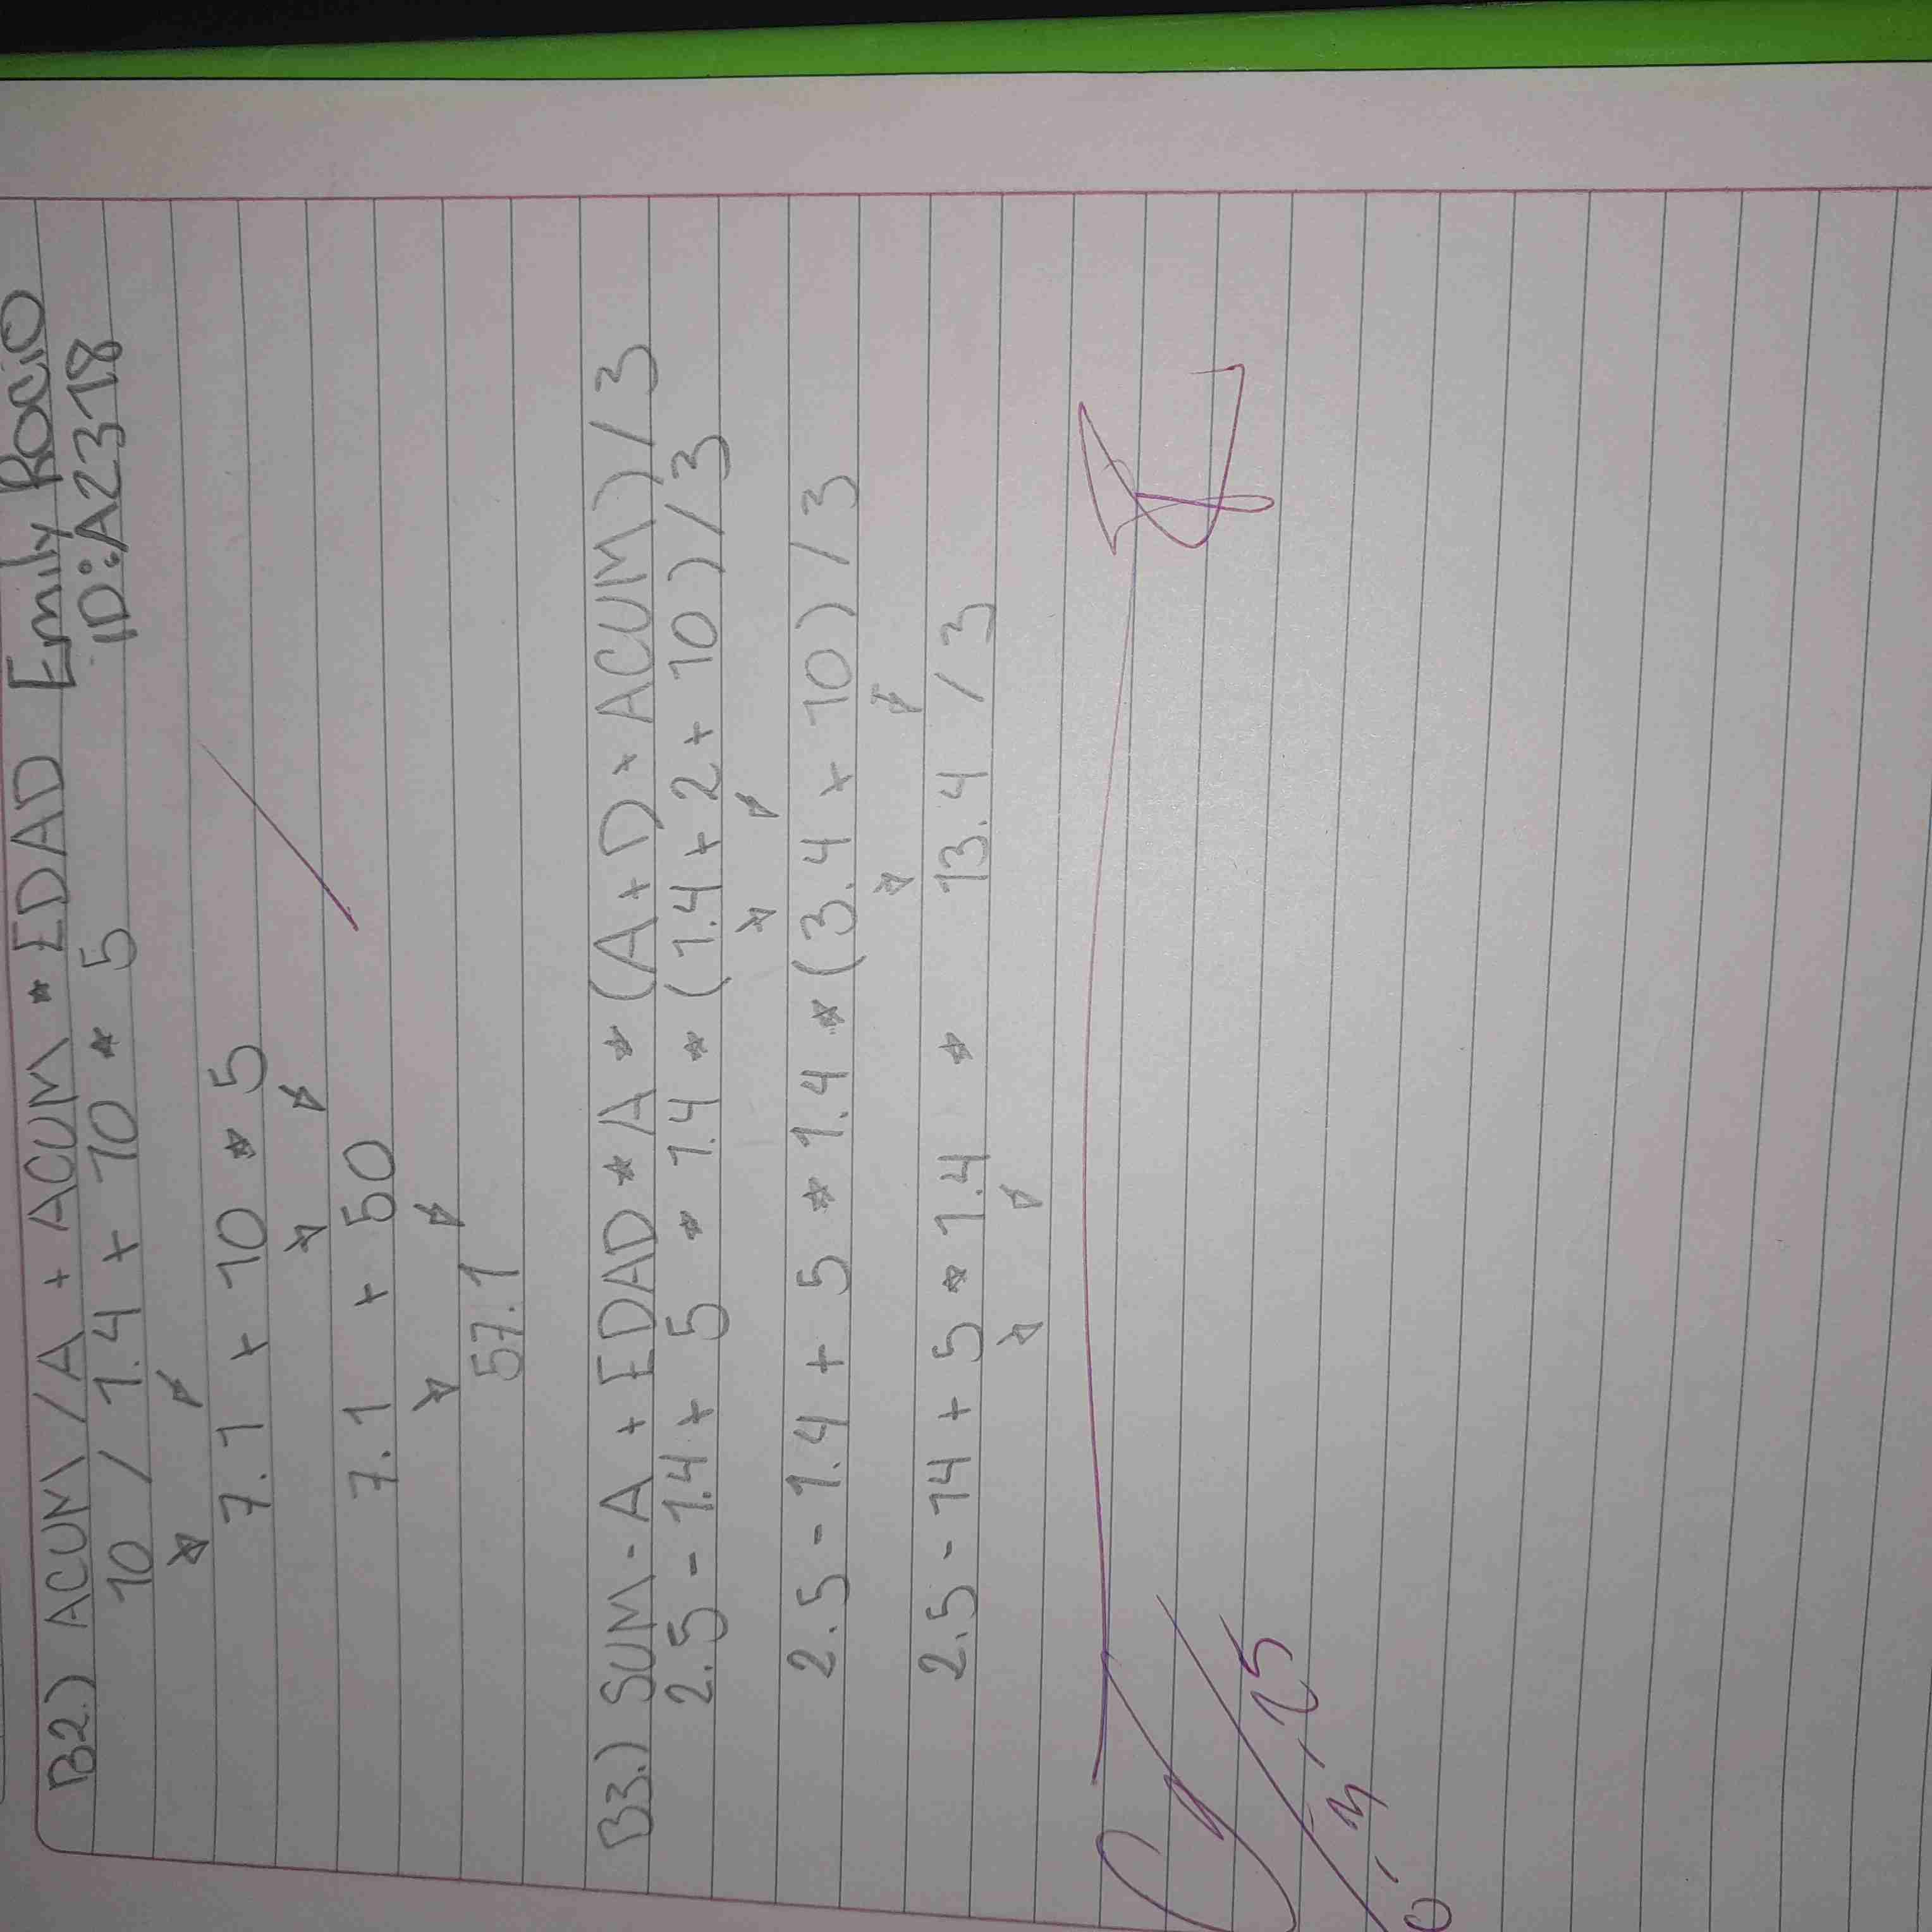 B2.) ACUM / A + ACUM * EDAD Emily Rocio
ID:A2318
10 / 1.4 + 10 * 5
7.1 + 10 * 5
7.1 + 50
57.1
B3.) SUM - A + EDAD * A * (A + D + ACUM) / 3
2.5 - 1.4 + 5 * 1.4 * (1.4 + 2 + 10) / 3
2.5 - 1.4 + 5 * 1.4 * (3.4 + 10) / 3
2.5 - 14 + 5 * 1.4 * 13.4 / 3